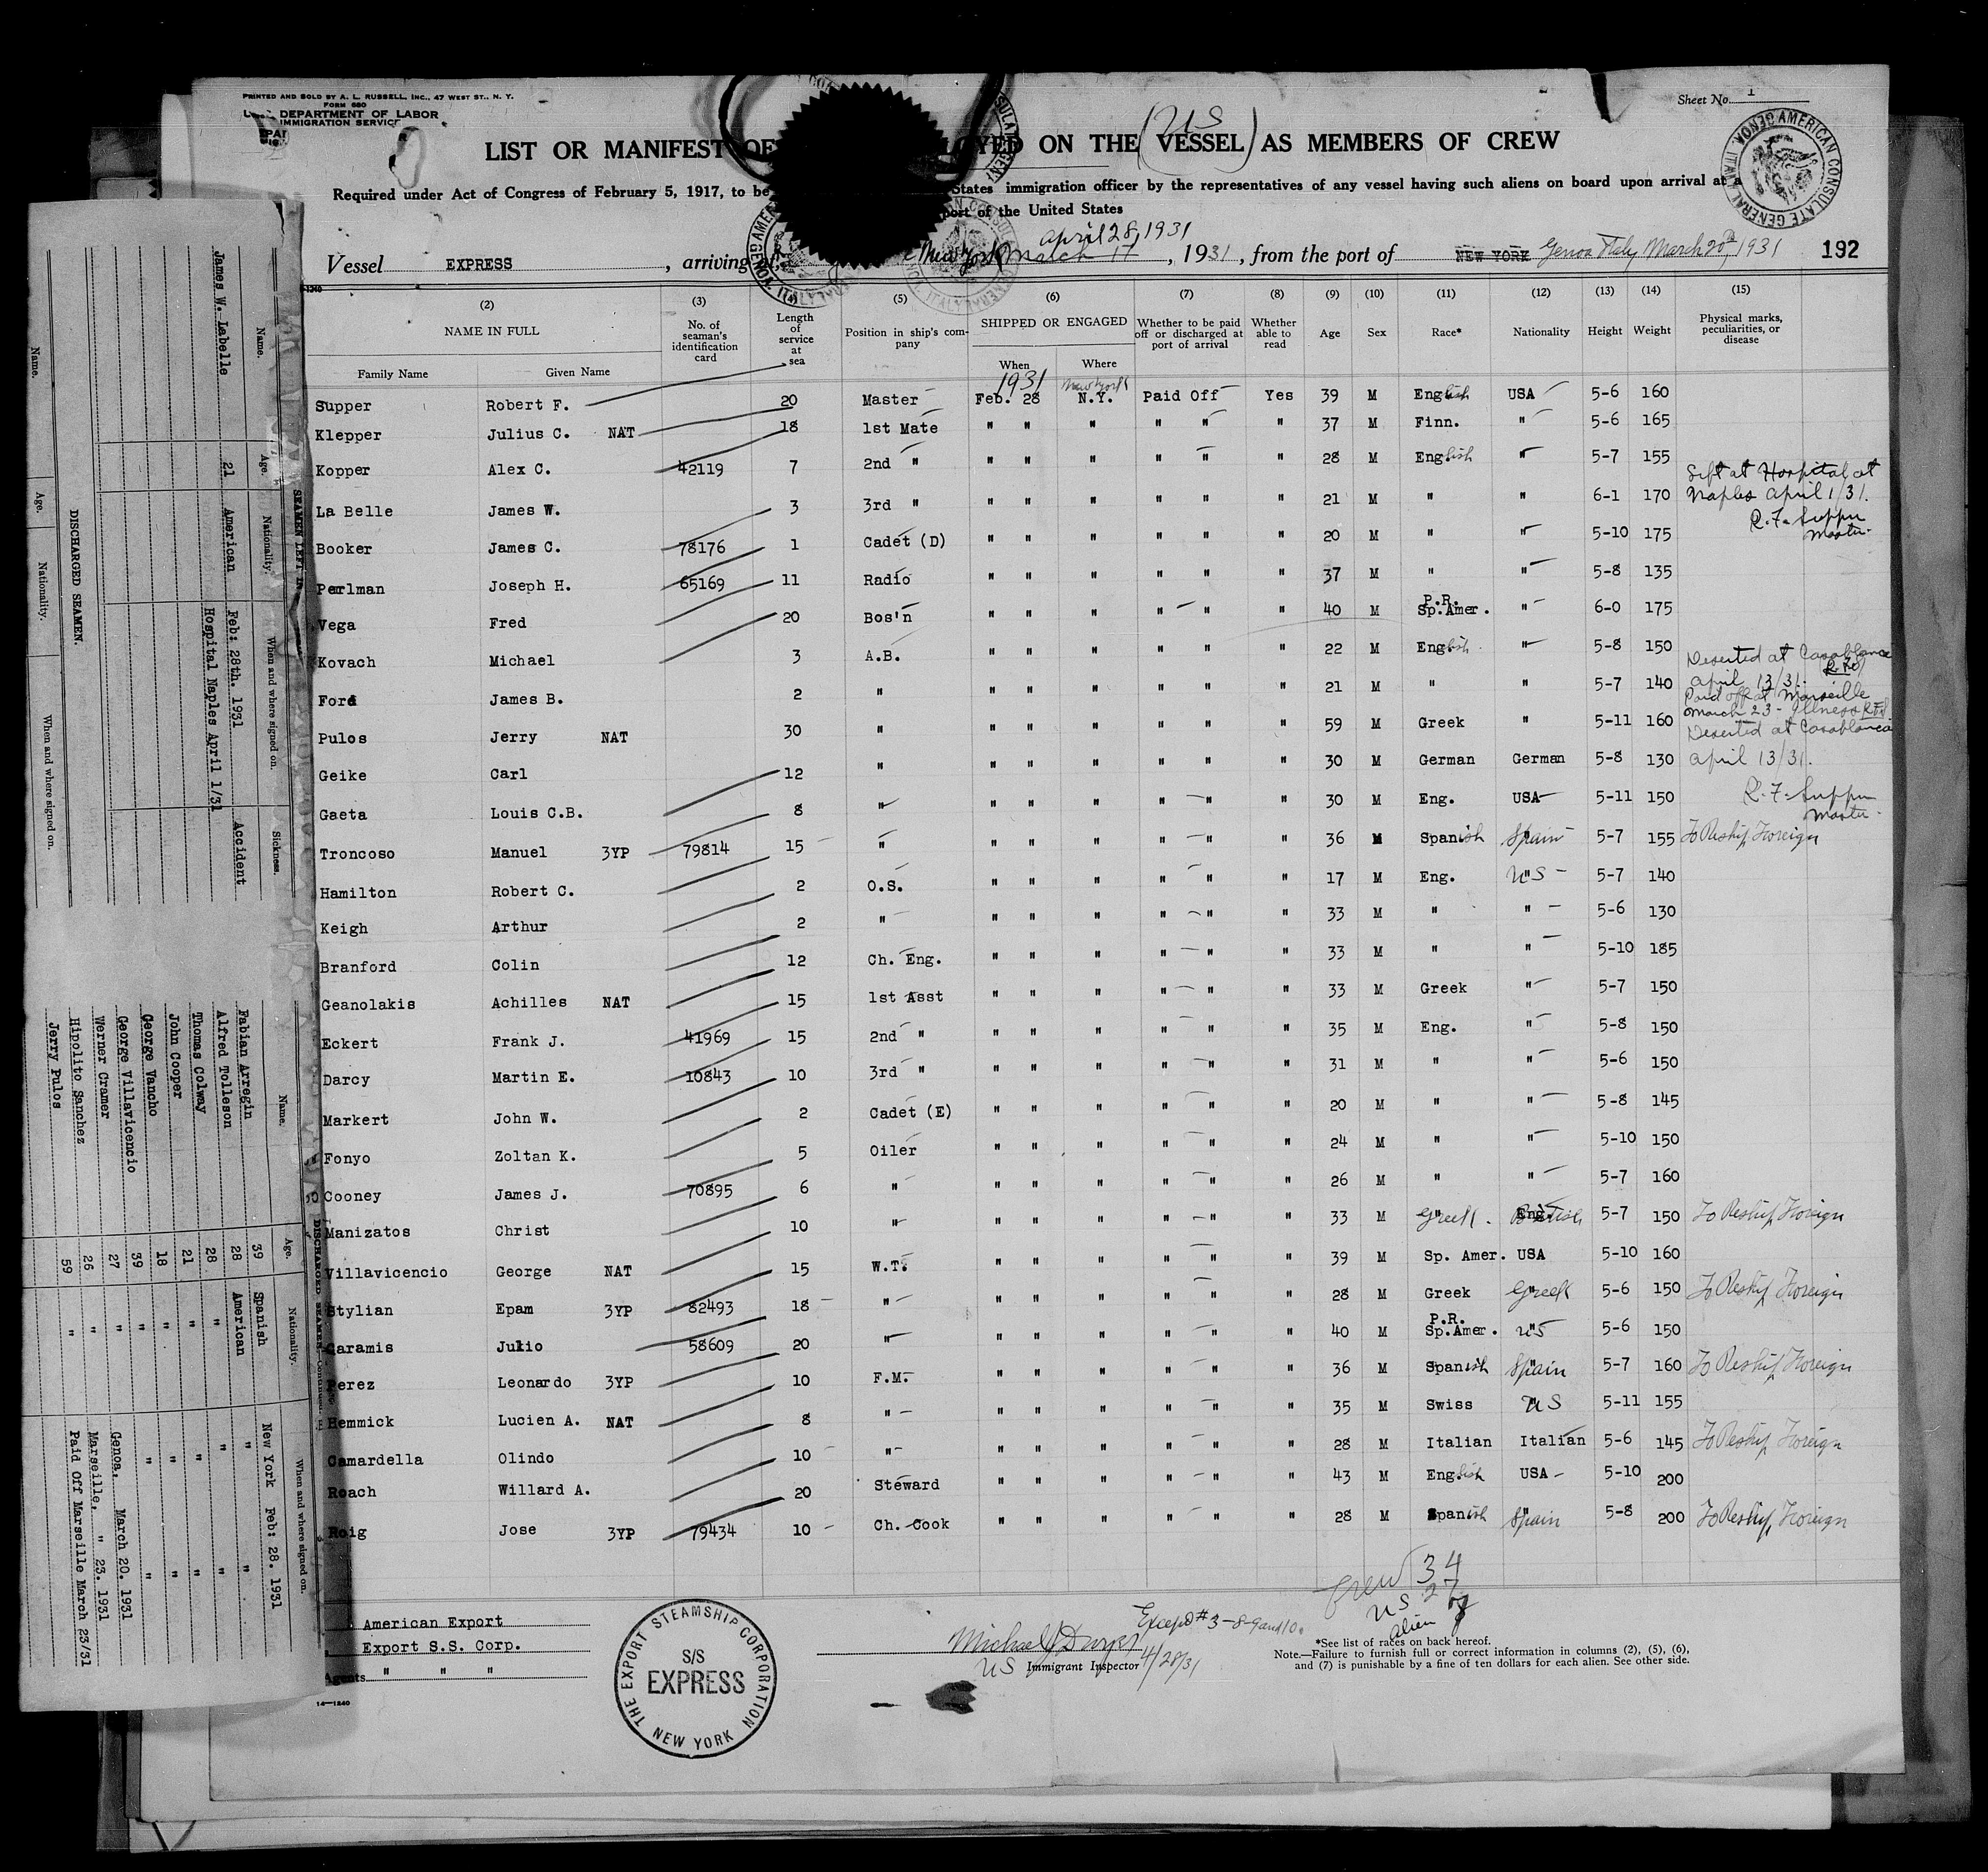 PRINTED AND SOLD BY A. L. RUSSELL, INC., 47 WEST ST., N. Y.
FORM 680
DEPARTMENT OF LABOR
IMMIGRATION SERVICE
Sheet No. 1
LIST OR MANIFEST OF ON THE (US VESSEL) AS MEMBERS OF CREW
Required under Act of Congress of February 5, 1917, to be States immigration officer by the representatives of any vessel having such aliens on board upon arrival at a
port of the United States
April 28, 1931
Vessel EXPRESS, arriving at New York March 17, 1931, from the port of NEW YORK Genoa Italy March 20th, 1931 192
AMERICAN CONSULATE GENERAL GENOA, ITALY
(2) (3) Length of service at sea (5) (6) (7) (8) (9) (10) (11) (12) (13) (14) (15)
NAME IN FULL No. of seaman's identification card Position in ship's company SHIPPED OR ENGAGED Whether to be paid off or discharged at port of arrival Whether able to read Age Sex Race* Nationality Height Weight Physical marks, peculiarities, or disease
Family Name Given Name When Where
1931 New York
Supper Robert F. 20 Master Feb. 28 N.Y. Paid Off Yes 39 M English USA 5-6 160
Klepper Julius C. NAT 18 1st Mate " " " " " " 37 M Finn. " 5-6 165
Kopper Alex C. 42119 7 2nd " " " " " " " 28 M English " 5-7 155
La Belle James W. 3 3rd " " " " " " " 21 M " " 6-1 170 Left at Hospital at Naples April 1/31. R. F. Supper Master
Booker James C. 78176 1 Cadet (D) " " " " " " 20 M " " 5-10 175
Perlman Joseph H. 65169 11 Radio " " " " " " 37 M " " 5-8 135
Vega Fred 20 Bos'n " " " " " " 40 M P.R. Sp.Amer. " 6-0 175
Kovach Michael 3 A.B. " " " " " " 22 M English " 5-8 150
Ford James B. 2 " " " " " " " 21 M " " 5-7 140 Deserted at Casablanca April 13/31.
Pulos Jerry NAT 30 " " " " " " " 59 M Greek " 5-11 160 Paid off at Marseille March 23 - Illness
Geike Carl 12 " " " " " " " 30 M German German 5-8 130 Deserted at Casablanca April 13/31.
Gaeta Louis C.B. 8 " " " " " " " 30 M Eng. USA 5-11 150 R. F. Supper Master
Troncoso Manuel 3YP 79814 15 " " " " " " " 36 M Spanish Spain 5-7 155 To Reship Foreign
Hamilton Robert C. 2 O.S. " " " " " " 17 M Eng. US 5-7 140
Keigh Arthur 2 " " " " " " " 33 M " " 5-6 130
Branford Colin 12 Ch. Eng. " " " " " " 33 M " " 5-10 185
Geanolakis Achilles NAT 15 1st Asst " " " " " " 33 M Greek " 5-7 150
Eckert Frank J. 41969 15 2nd " " " " " " " 35 M Eng. " 5-8 150
Darcy Martin E. 10843 10 3rd " " " " " " " 31 M " " 5-6 150
Markert John W. 2 Cadet (E) " " " " " " 20 M " " 5-8 145
Fonyo Zoltan K. 5 Oiler " " " " " " 24 M " " 5-10 150
Cooney James J. 70895 6 " " " " " " " 26 M " " 5-7 160
Manizatos Christ 10 " " " " " " " 33 M Greek British 5-7 150 To Reship Foreign
Villavicencio George NAT 15 W.T. " " " " " " 39 M Sp. Amer. USA 5-10 160
Stylian Epam 3YP 82493 18 " " " " " " " 28 M Greek Greek 5-6 150 To Reship Foreign
Caramis Julio 58609 20 " " " " " " " 40 M P.R. Sp.Amer. US 5-6 150
Perez Leonardo 3YP 10 F.M. " " " " " " 36 M Spanish Spain 5-7 160 To Reship Foreign
Hemmick Lucien A. NAT 8 " " " " " " " 35 M Swiss US 5-11 155
Camardella Olindo 10 " " " " " " " 28 M Italian Italian 5-6 145 To Reship Foreign
Roach Willard A. 20 Steward " " " " " " 43 M English USA 5-10 200
Roig Jose 3YP 79434 10 Ch. Cook " " " " " " 28 M Spanish Spain 5-8 200 To Reship Foreign
Crew 34
US 27
alien
American Export
Export S.S. Corp.
Agents " " "
14—1240
THE EXPORT STEAMSHIP CORPORATION
S/S
EXPRESS
NEW YORK
Except # 3-8-9 and 10.
Michael J Dwyer
US Immigrant Inspector 4/28/31
*See list of races on back hereof.
Note.—Failure to furnish full or correct information in columns (2), (5), (6),
and (7) is punishable by a fine of ten dollars for each alien. See other side.
SEAMEN LEFT IN
Name. Age. Nationality. When and where signed on. Sickness.
James W. Labelle 21 American Feb: 28th. 1931 Accident
Hospital Naples April 1/31
DISCHARGED SEAMEN.
Name. Age. Nationality. When and where signed on.
DISCHARGED SEAMEN—Continued.
Name. Age. Nationality. When and where signed on.
Fabian Arregin 39 Spanish New York Feb: 28. 1931
Alfred Tolleson 28 American " "
Thomas Colway 28 " " "
John Cooper 21 " " "
George Vancho 18 " " "
George Villavicencio 39 "
Werner Cramer 27 " Genoa, March 20. 1931
Hipolito Sanchez 26 " Marseille, " 23. 1931
Jerry Pulos 59 " Paid Off Marseille March 23/31